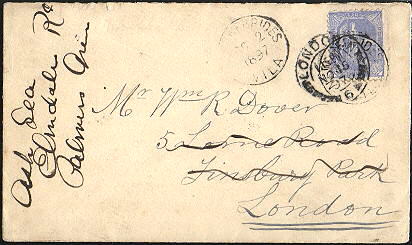 Mr Wm R Dover
5 Lorne Road
Finsbury Park
London
Ash Lea
Elmdale Rd
Palmers Green
LONDON
1897
VILA